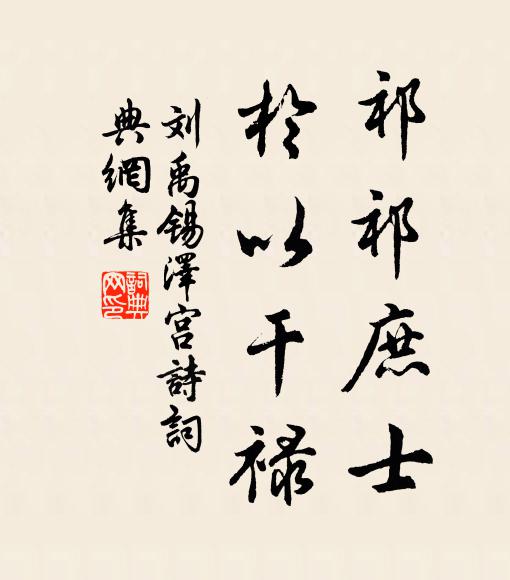 祁祁庶士
於以干禄
刘禹锡澤宫詩詞
典網集
詞典网印